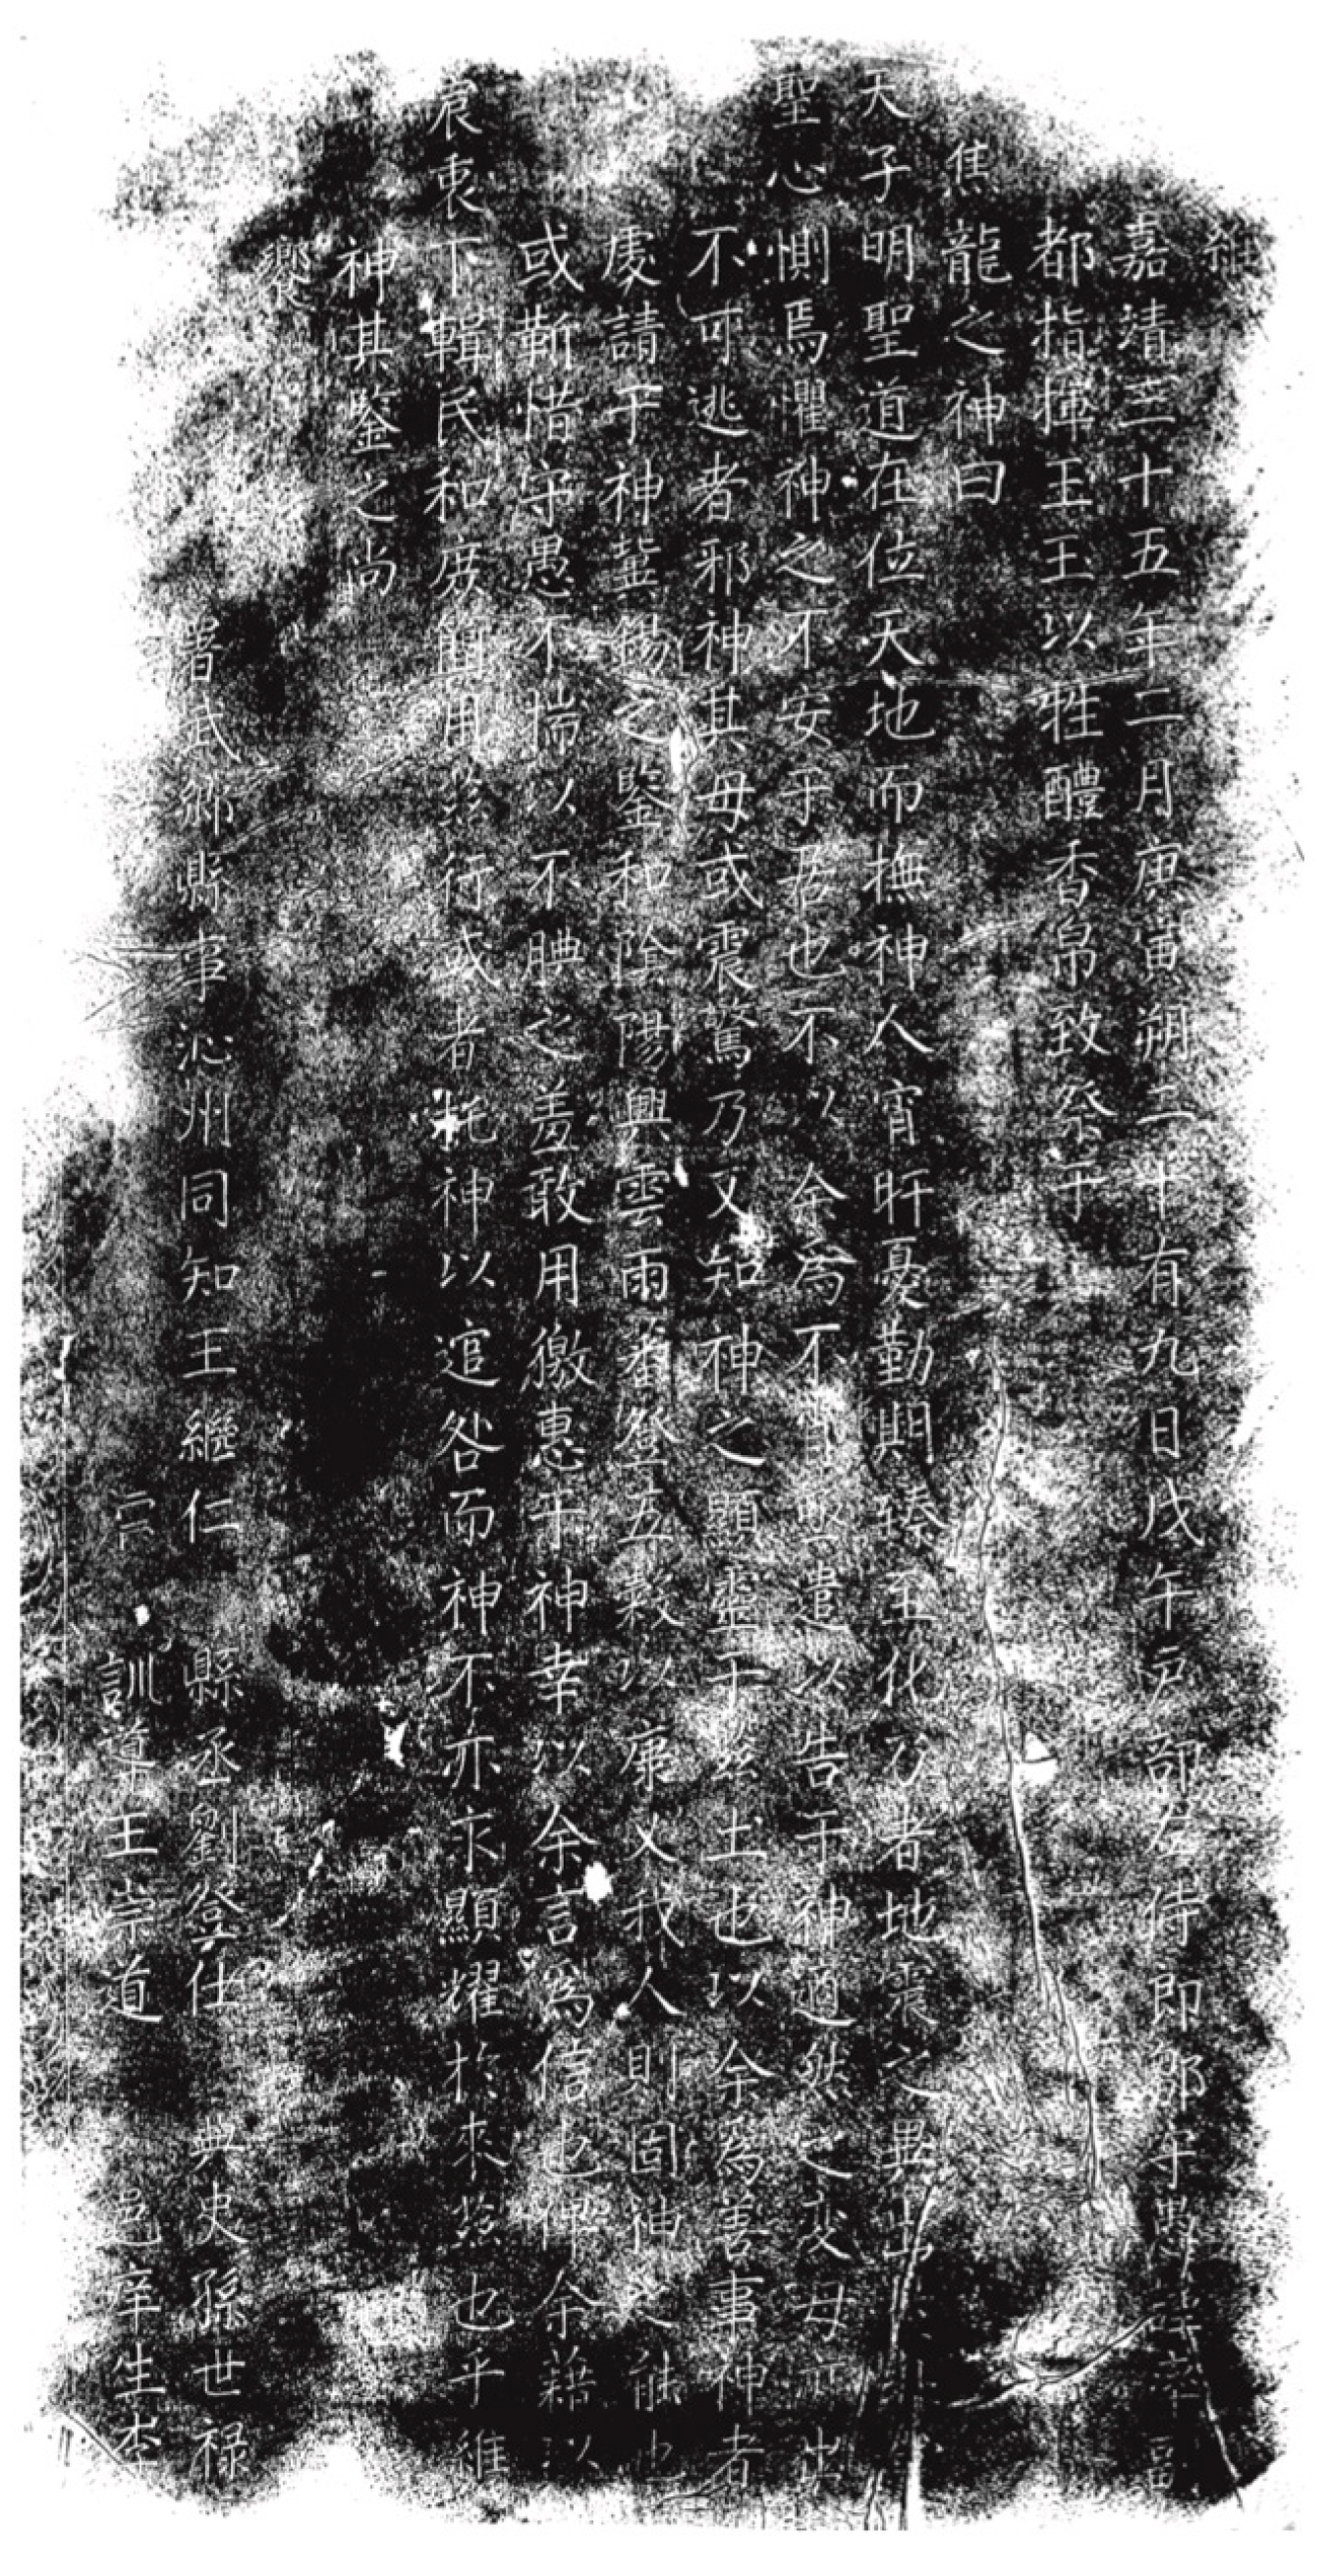 維
嘉靖三十五年二月庚寅朔二十有九日戊午戶部左侍郎鄒守愚謹率副
都指揮王玉以牲醴香帛致祭于
焦龍之神曰
天子明聖道在位天地而撫神人宵旰憂勤期臻至化乃者地震之異
聖心惻焉懼神之不安于居也不以余爲不肖聖遣以告于神神適然之変毋亦出
不可逃者邪神其毋或震驚乃又知神之顕靈于兹土也以余爲善事神者
處請于神冀錫之鑒和陰陽興雲雨蕃登五穀以康乂我人則固神之能也
或靳惜守愚不惴以不腆之羞敢用徼惠于神幸以余言爲信也俾余藉以
宸衷下輯民和庻圖用兹行或者托神以逭咎而神不亦永顯燿於來兹也乎維
神其鑒之尚
饗
署武鄉縣事沁州同知王繼仁 縣丞劉登仕 典史孫世禄
訓導王崇道 邑庠生李